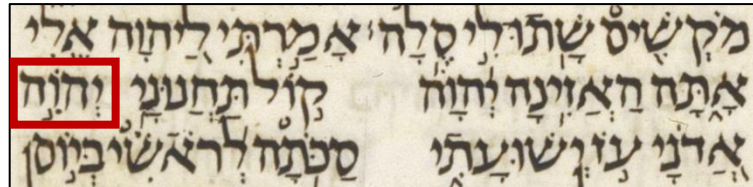 מֹקְשִׁים שָׁתוּ לִי סֶלָה׃ אָמַרְתִּי לַיהוָה אֵלִי
אָתָּה הַאֲזִינָה יְהוָה קוֹל תַּחֲנוּנָי יְהֹוִה
אֲדֹנָי עֹז יְשׁוּעָתִי סַכֹּתָה לְרֹאשִׁי בְּיוֹם